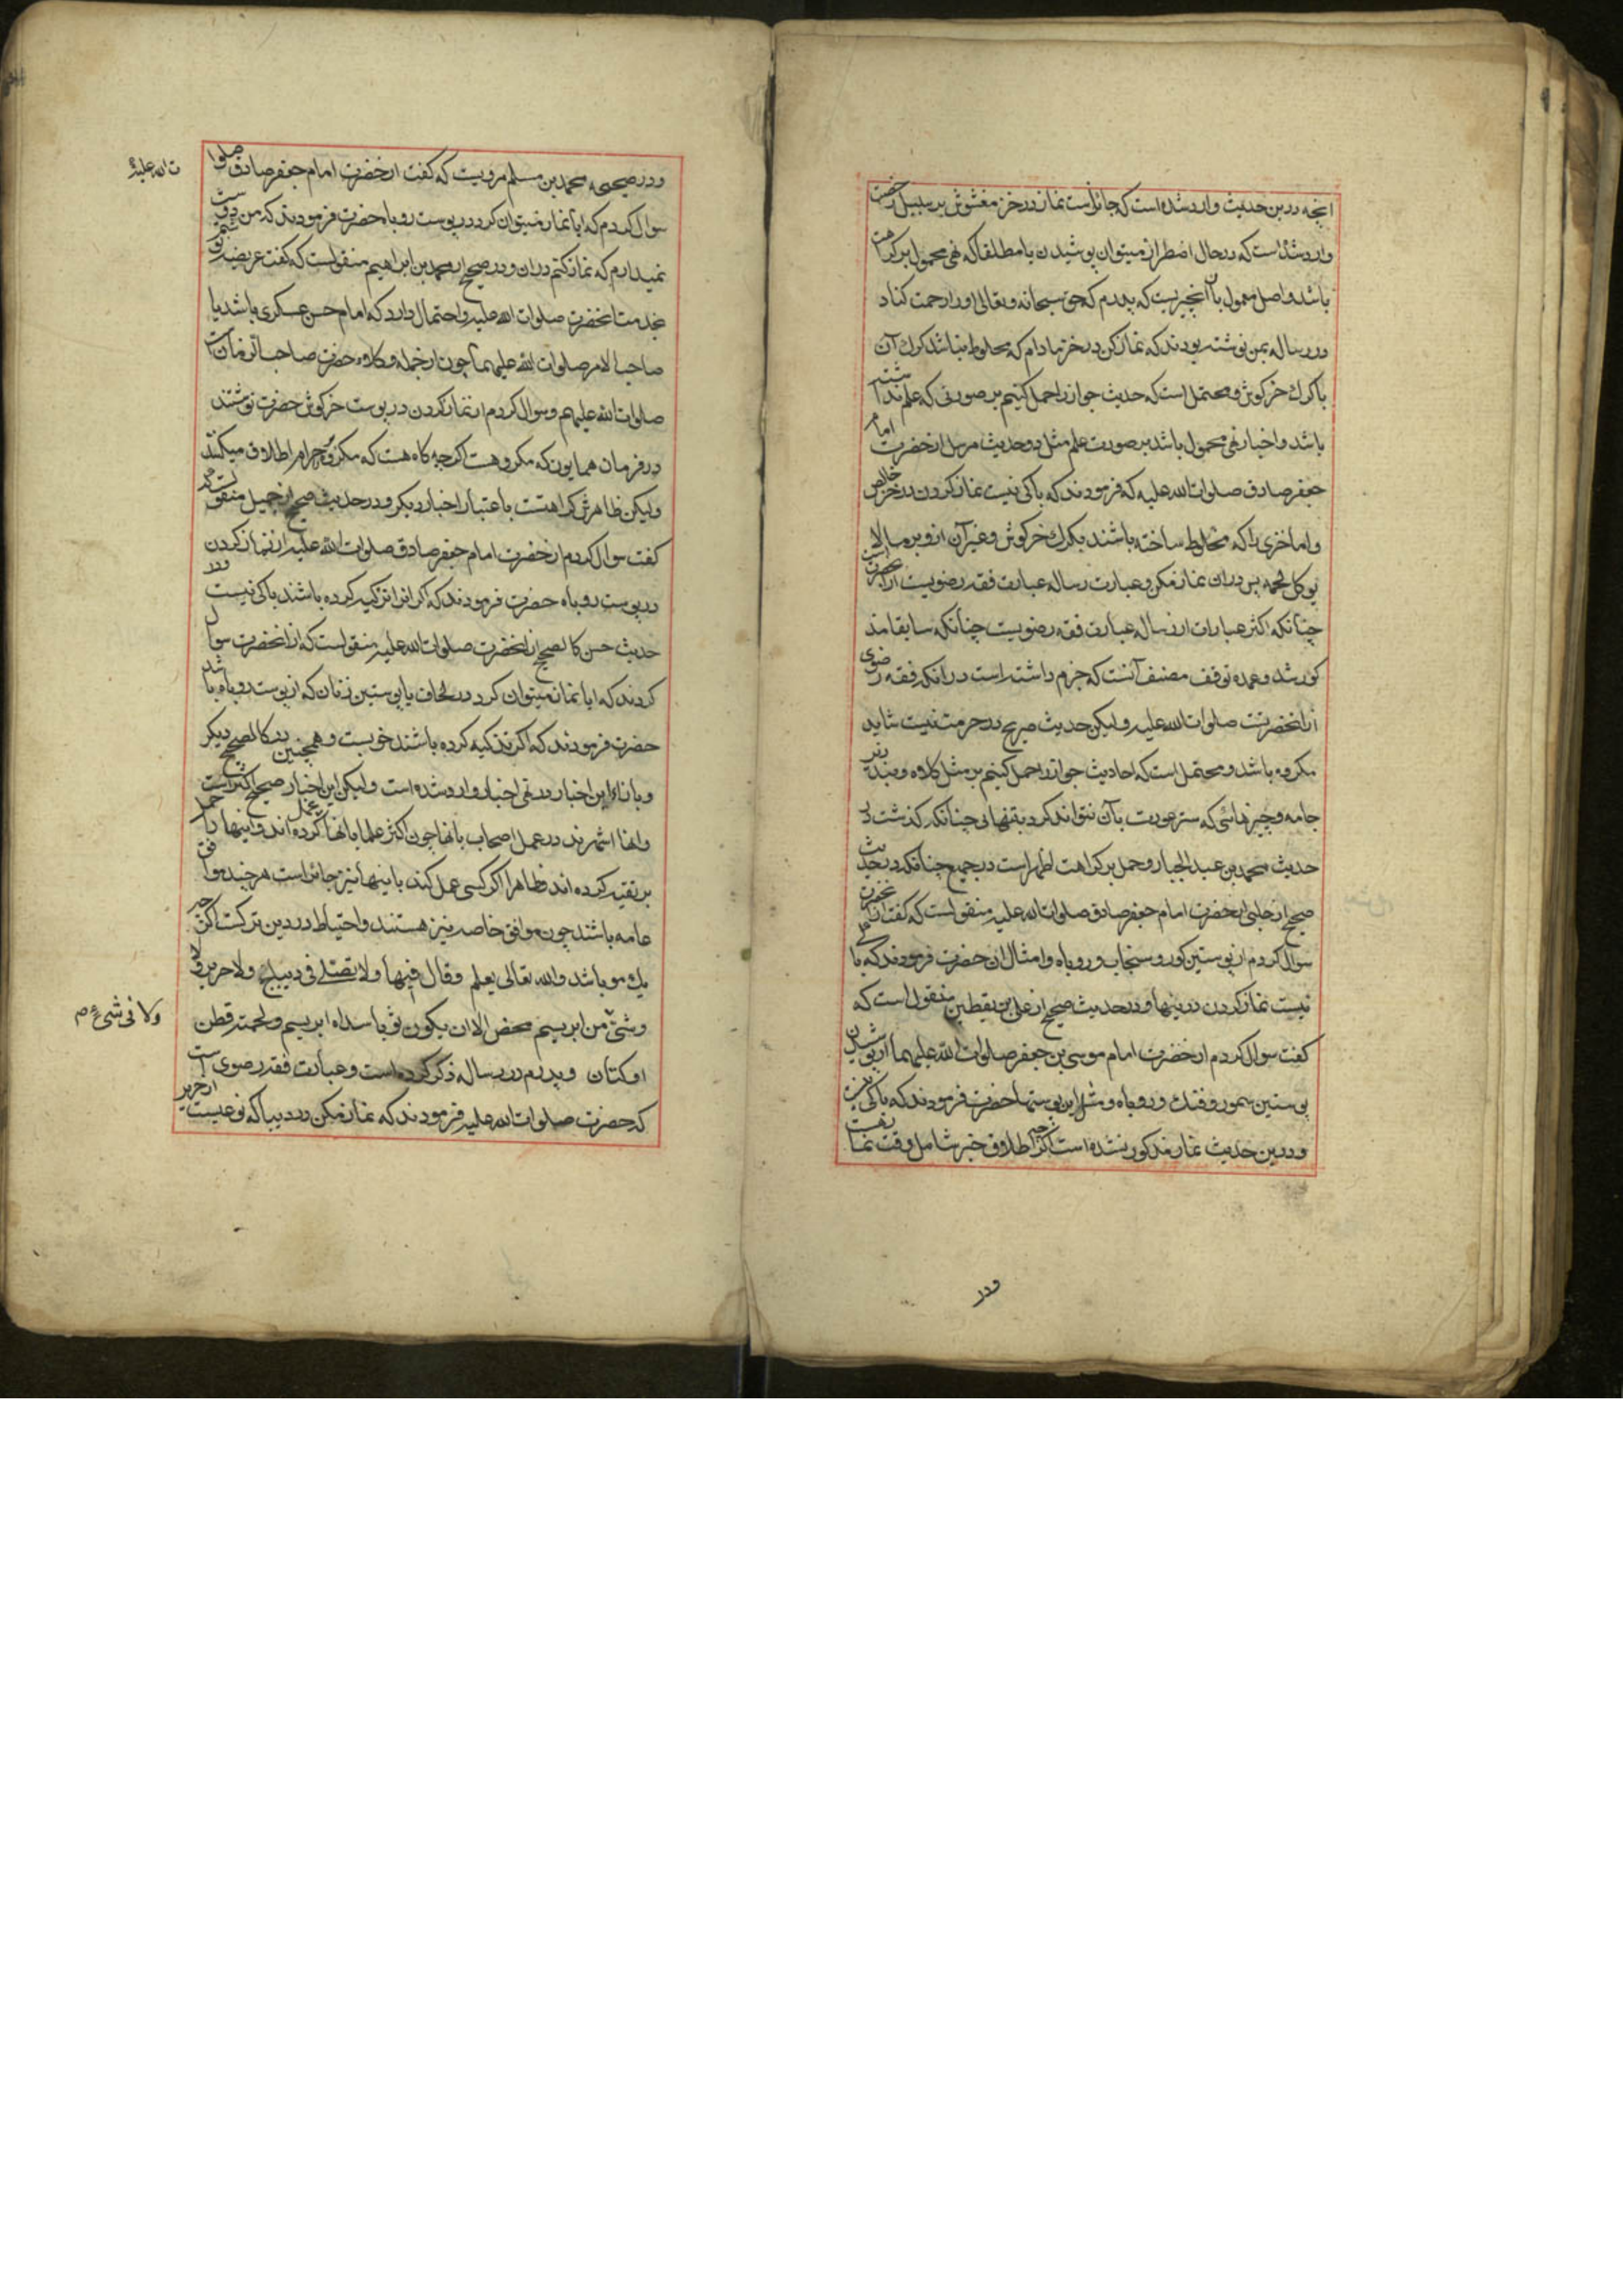 انچه درین حدیث وارد شده است که جائز است نماز در خز مغشوش بر سبیل رخصت
وارد شده است که در حال اضطرار میتوان پوشیدن یا مطلقا که نهی محمول بر کراهت
باشد و اصل معمول بآن انچیزیست که پدرم که حق سبحانه و تعالی او را رحمت کناد
در رساله بمن نوشته بودند که نماز کن در خز مادام که مخلوط نباشد کرك آن
با کرك خرکوش و محتمل است که حدیث جواز را حمل کنیم بر صورتی که علم نداشته
باشد و اخبار نهی محمول باشد بر صورت علم مثل دو حدیث مرسل از حضرت امام
جعفر صادق صلوات الله علیه که فرمودند که باکی نیست نماز کردن در خز خالص
و اما خزی را که مخلوط ساخته باشند بکرك خرکوش و غیر آن ازو بر
پس دران نماز مکن و عبارت رساله عبارت فقه رضویست
چنانکه اکثر عبارات از رساله عبارت فقه رضویست چنانکه سابقا مذ
کور شد و عمده توقف مصنف آنست که جزم داشته است در انکه فقه رضوی
از انحضرتست صلوات الله علیه ولیکن حدیث صریح در حرمت نیست شاید
مکروه باشد و محتمل است که احادیث جواز را حمل کنیم بر مثل کلاه و بند زیر
جامه و چیزهائی که ستر عورت بآن نتواند کرد بتنهائی چنانکه کذشت در
حدیث محمد بن عبد الجبار و حمل بر کراهت اظهر است در جمیع چنانکه در حدیث
صحیح از حلبی از حضرت امام جعفر صادق صلوات الله علیه منقولست که کفت از انحضرت
سوال کردم از پوستین سمور و سنجاب و روباه و امثال ان حضرت فرمودند که باکی
نیست نماز کردن درینها و در حدیث صحیح از علی بن یقطین منقول است که
کفت سوال کردم از حضرت امام موسی بن جعفر صلوات الله علیهما از پوشیدن
پوستین سمور و فنك و روباه و مثل این پوستها حضرت فرمودند که باکی نیست
و درین حدیث نماز مذکور نشده است اکر چه اطلاق خبر شامل وقت نماز هست
ودر
و در صحیحه محمد بن مسلم مرویست که کفت از حضرت امام جعفر صادق صلوا
ت الله علیه
سوال کردم که ایا نماز میتوان کرد در پوست روباه حضرت فرمودند که من دوست
نمیدارم که نماز کنم دران و در صحیح از محمد بن ابراهیم منقولست که کفت عریضه نوشتم
بخدمت انحضرت صلوات الله علیه و احتمال دارد که امام حسن عسکری باشد یا
صاحب الامر صلوات الله علیهما چون از جمله وکلاء حضرت صاحب الزمان است
صلوات الله علیهم و سوال کردم از نماز کردن در پوست خرکوش حضرت نوشتند
در فرمان همایون که مکروهست اکر چه کاه هست که مکروه بر حرام اطلاق میکنند
ولیکن ظاهرش کراهتست باعتبار اخبار دیکر و در حدیث صحیح از جمیل منقولست که
کفت سوال کردم از حضرت امام جعفر صادق صلوات الله علیه از نماز کردن
در پوست روباه حضرت فرمودند که اکر انرا تزکیه کرده باشند باکی نیست و در
حدیث حسن کالصحیح از انحضرت صلوات الله علیه منقولست که از انحضرت سوال
کردند که ایا نماز میتوان کرد در لحاف یا پوستین زنان که از پوست روباه باشد
حضرت فرمودند که اکر تذکیه کرده باشند خوبست و همچنین در کالصحیح دیکر
و بازاء این اخبار در نهی اخبار وارد شده است ولیکن این اخبار صحیح اکثر است
و انها اشهرند در عمل اصحاب بانها چون اکثر علما بانها عمل کرده اند و اینها را حمل
بر تقیه کرده اند و ظاهرا اکر کسی عمل کند باینها نیز جائز است هر چند موافق
عامه باشند چون موافق خاصه نیز هستند و احتیاط در دین ترکست اکر چه
یك مو باشد والله تعالی یعلم وقال فیها ولا تصل فی دیباج ولا حریر ولا
ولا فی شیء م
وشی من ابریسم محض الا ان یکون ثوبا سداه ابریسم ولحمته قطن
او کتان و پدرم در رساله ذکر کرده است و عبارت فقه رضوی است
که حضرت صلوات الله علیه فرمودند که نماز مکن در دیبا که نوعیست از حریر